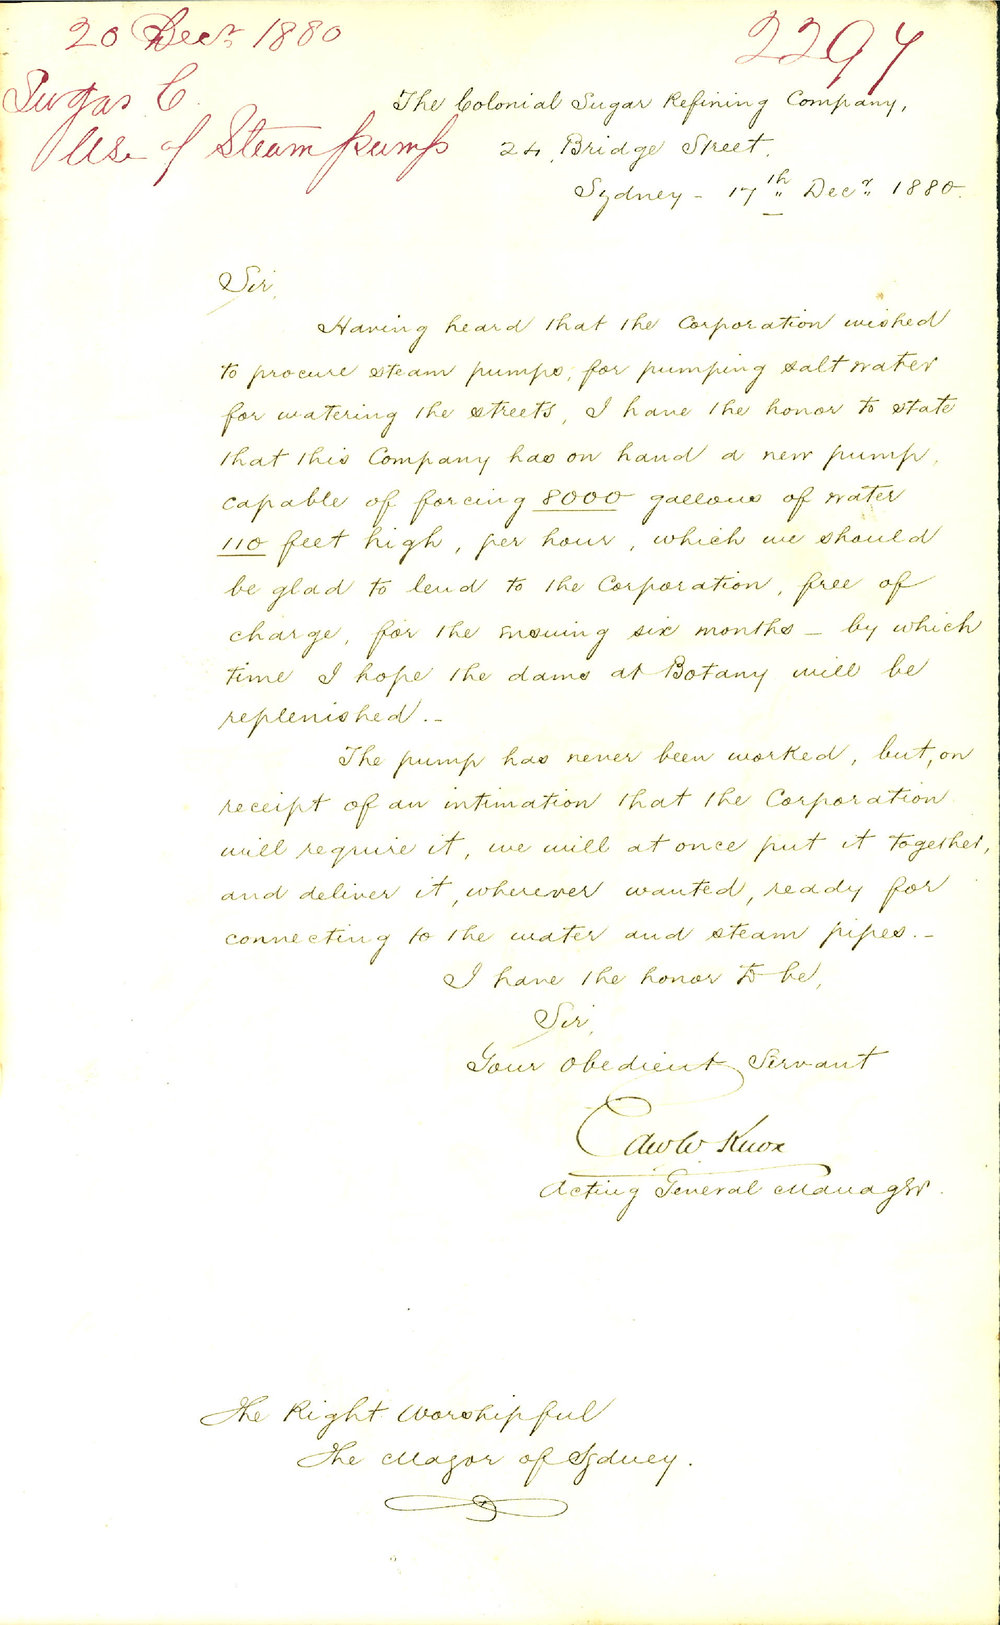 20 Decr 1880
2297
Sugar C.
Use of Steam pump
The Colonial Sugar Refining Company,
24, Bridge Street,
Sydney - 17th Decr 1880.
Sir,
Having heard that the Corporation wished
to procure steam pumps, for pumping salt water
for watering the streets, I have the honor to state
that this Company has on hand a new pump,
capable of forcing 8000 gallons of water
110 feet high, per hour, which we should
be glad to lend to the Corporation, free of
charge, for the ensuing six months - by which
time I hope the dams at Botany will be
replenished.-
The pump has never been worked, but, on
receipt of an intimation that the Corporation
will require it, we will at once put it together,
and deliver it, wherever wanted, ready for
connecting to the water and steam pipes.-
I have the honor to be,
Sir,
Your Obedient Servant
Edw W. Knox
Acting General Manager.
The Right Worshipful
The Mayor of Sydney.